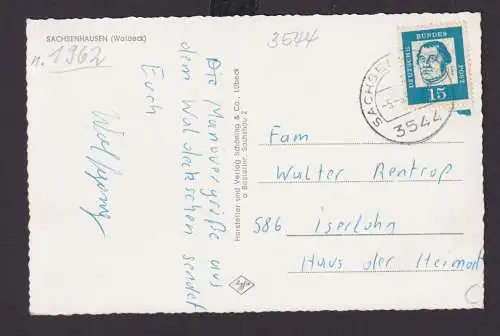 SACHSENHAUSEN (Waldeck)
n. 1962
3544
Die Manövergrüße aus
dem Waldeckschen sendet
Euch
Wolfgang
Hersteller und Verlag Schöning & Co., Lübeck
Agfa
DEUTSCHE BUNDESPOST
15
SACHSE
3544
Fam
Walter Rentrop
586 Iserlohn
Haus der Heimat